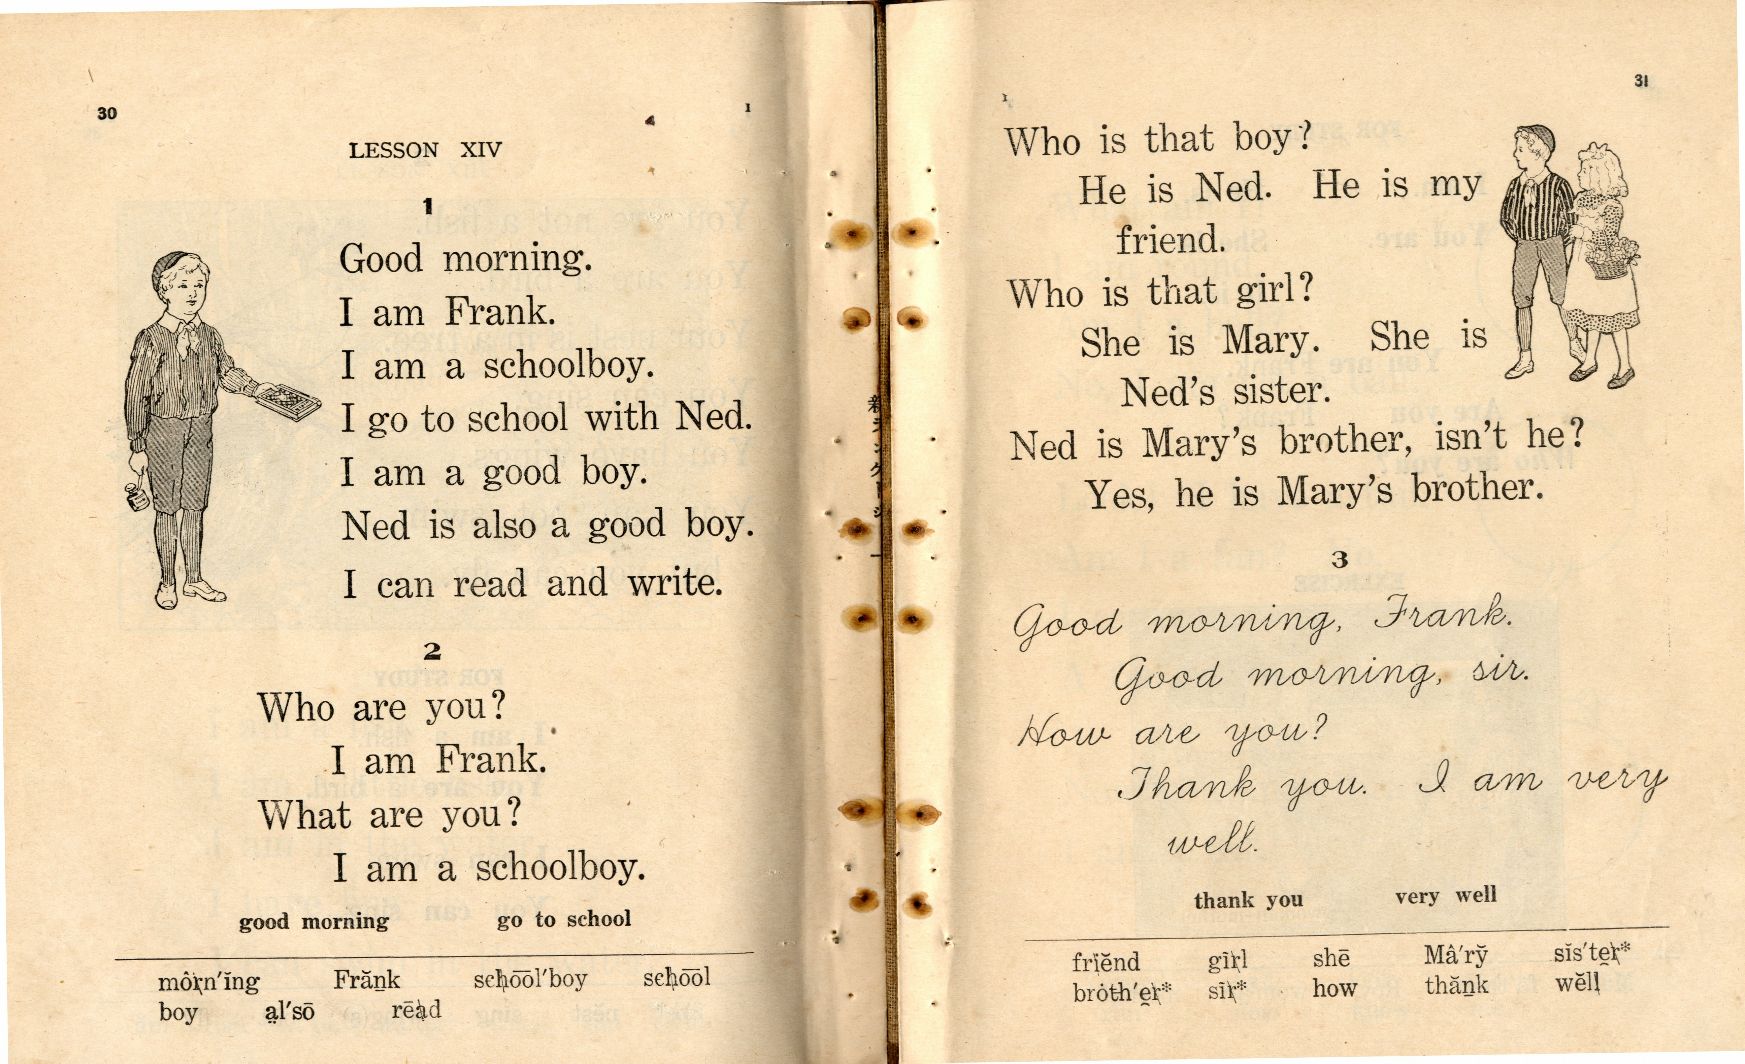 30
1
LESSON XIV
1
Good morning.
I am Frank.
I am a schoolboy.
I go to school with Ned.
I am a good boy.
Ned is also a good boy.
I can read and write.
2
Who are you?
I am Frank.
What are you?
I am a schoolboy.
good morning go to school
môrn'ĭng Frăṉk sc̵hōōl'boy sc̵hōōl
boy a̤l'sō rēa̵d
31
1
Who is that boy?
He is Ned. He is my
friend.
Who is that girl?
She is Mary. She is
Ned's sister.
Ned is Mary's brother, isn't he?
Yes, he is Mary's brother.
3
Good morning, Frank.
Good morning, sir.
How are you?
Thank you. I am very
well.
thank you very well
friĕnd girl shē Mâ'rў sĭs'ter*
brȯth'er* sir* how thăṉk wĕll